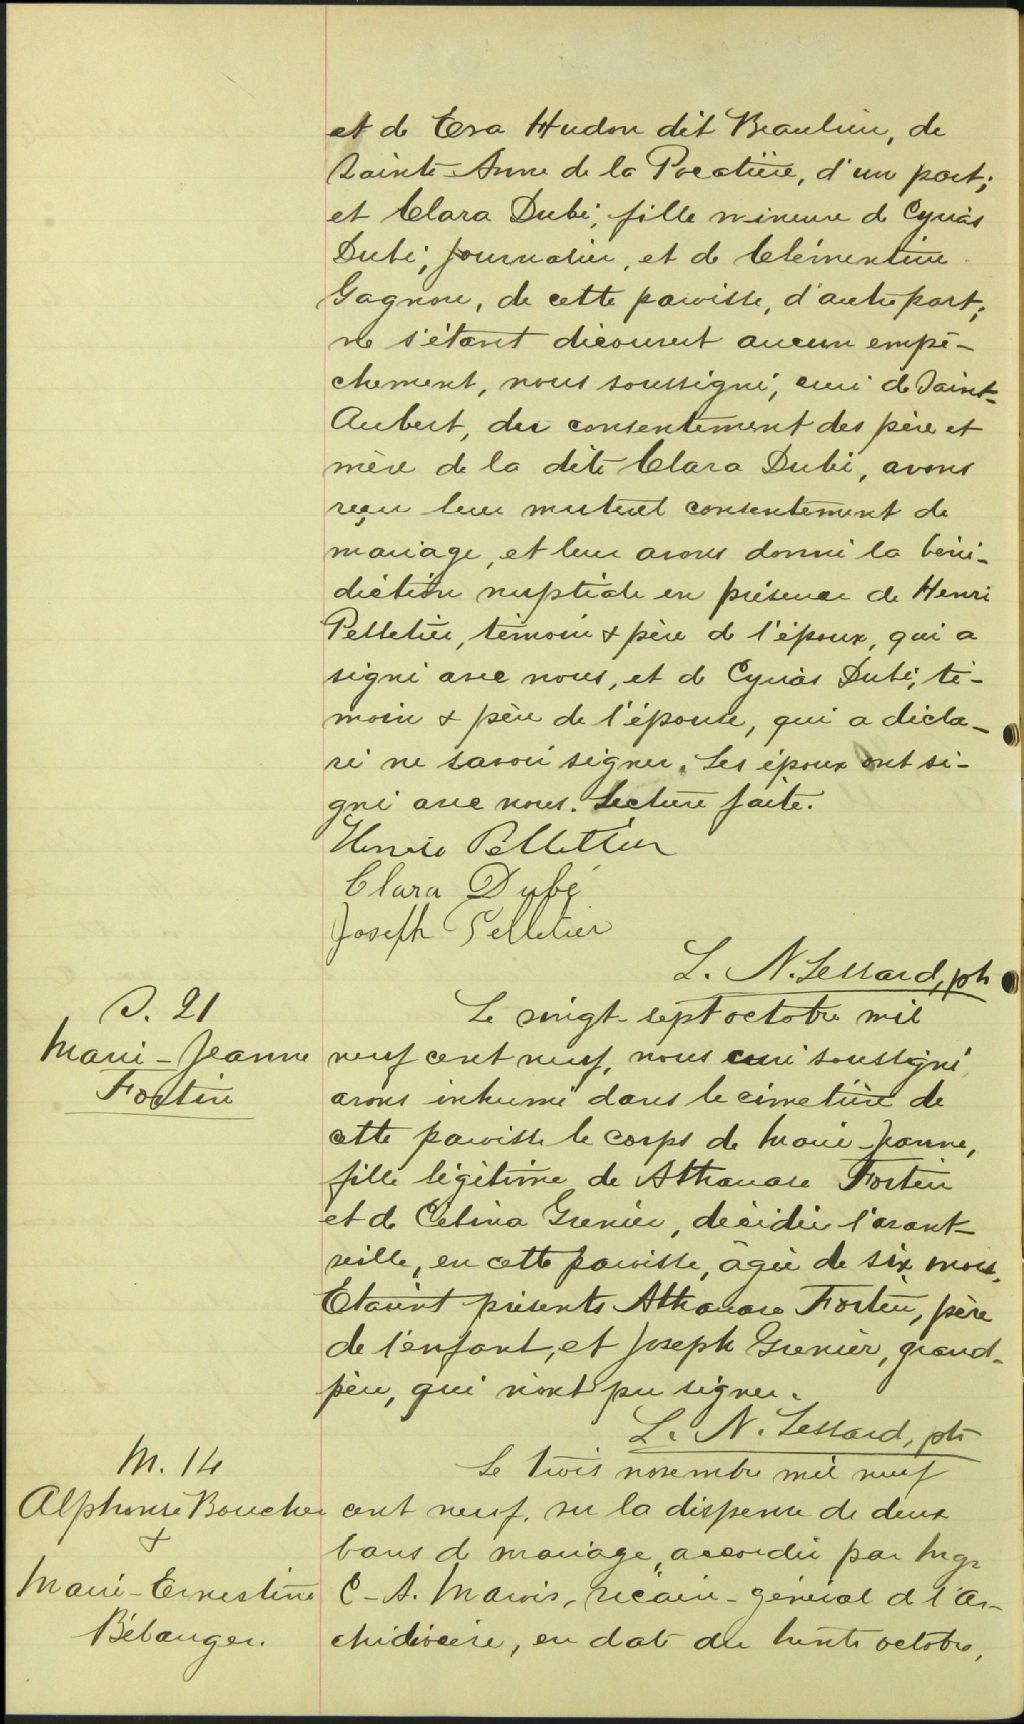 et de Esra Hudon dit Beaulieu, de
Sainte-Anne de la Pocatière, d'un part;
et Clara Dubé, fille mineure de Cyriàs
Dubé, journalier, et de Clémentine
Gagnon, de cette paroisse, d'autre part;
ne s'étant découvert aucun empê-
chement, nous soussigné, curé de Saint-
Aubert, du consentement des père et
mère de la dite Clara Dubé, avons
reçu leur mutuel consentement de
mariage, et leur avons donné la béné-
diction nuptiale en présence de Henri
Pelletier, témoin & père de l'époux, qui a
signé avec nous, et de Cyriàs Dubé, té-
moin & père de l'épouse, qui a décla-
ré ne savoir signer. Les époux ont si-
gné avec nous. Lecture faite.
Pelletier
Clara Dubé
Joseph Pelletier
L. N. Lessard, ptr
S. 21
Marie-Jeanne
Fortin
Le vingt-sept octobre mil
neuf cent neuf, nous curé soussigné,
avons inhumé dans le cimetière de
cette paroisse le corps de Marie-Jeanne,
fille légitime de Athanase Fortin
et de Célina Grenier, décédée l'avant-
veille, en cette paroisse, âgée de six mois.
Etaient présents Athanase Fortin, père
de l'enfant, et Joseph Grenier, grand-
père, qui n'ont pu signer.
L. N. Lessard, ptr
M. 14
Alphonse Boucher
&
Marie-Ernestine
Bélanger.
Le trois novembre mil neuf
cent neuf, vu la dispense de deux
bans de mariage, accordée par Mgr
C-A. Marois, vicaire-général de l'Ar-
chidiocèse, en date du trente octobre,